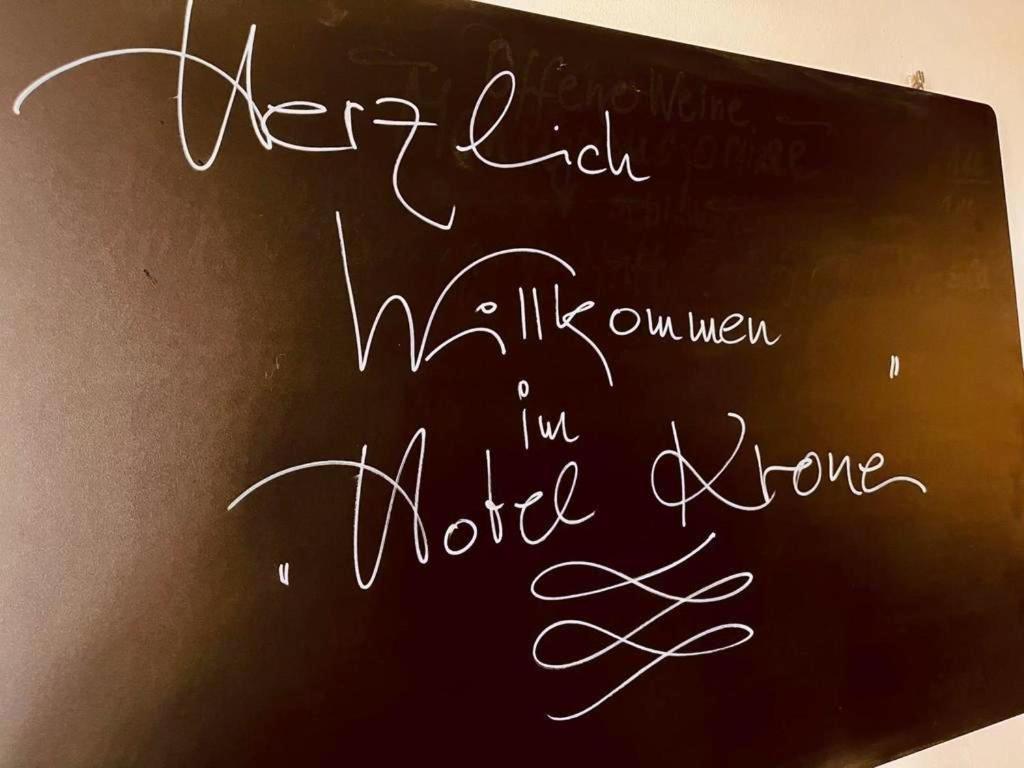 Offene Weine
Herzlich
Willkommen
im
„Hotel Krone"